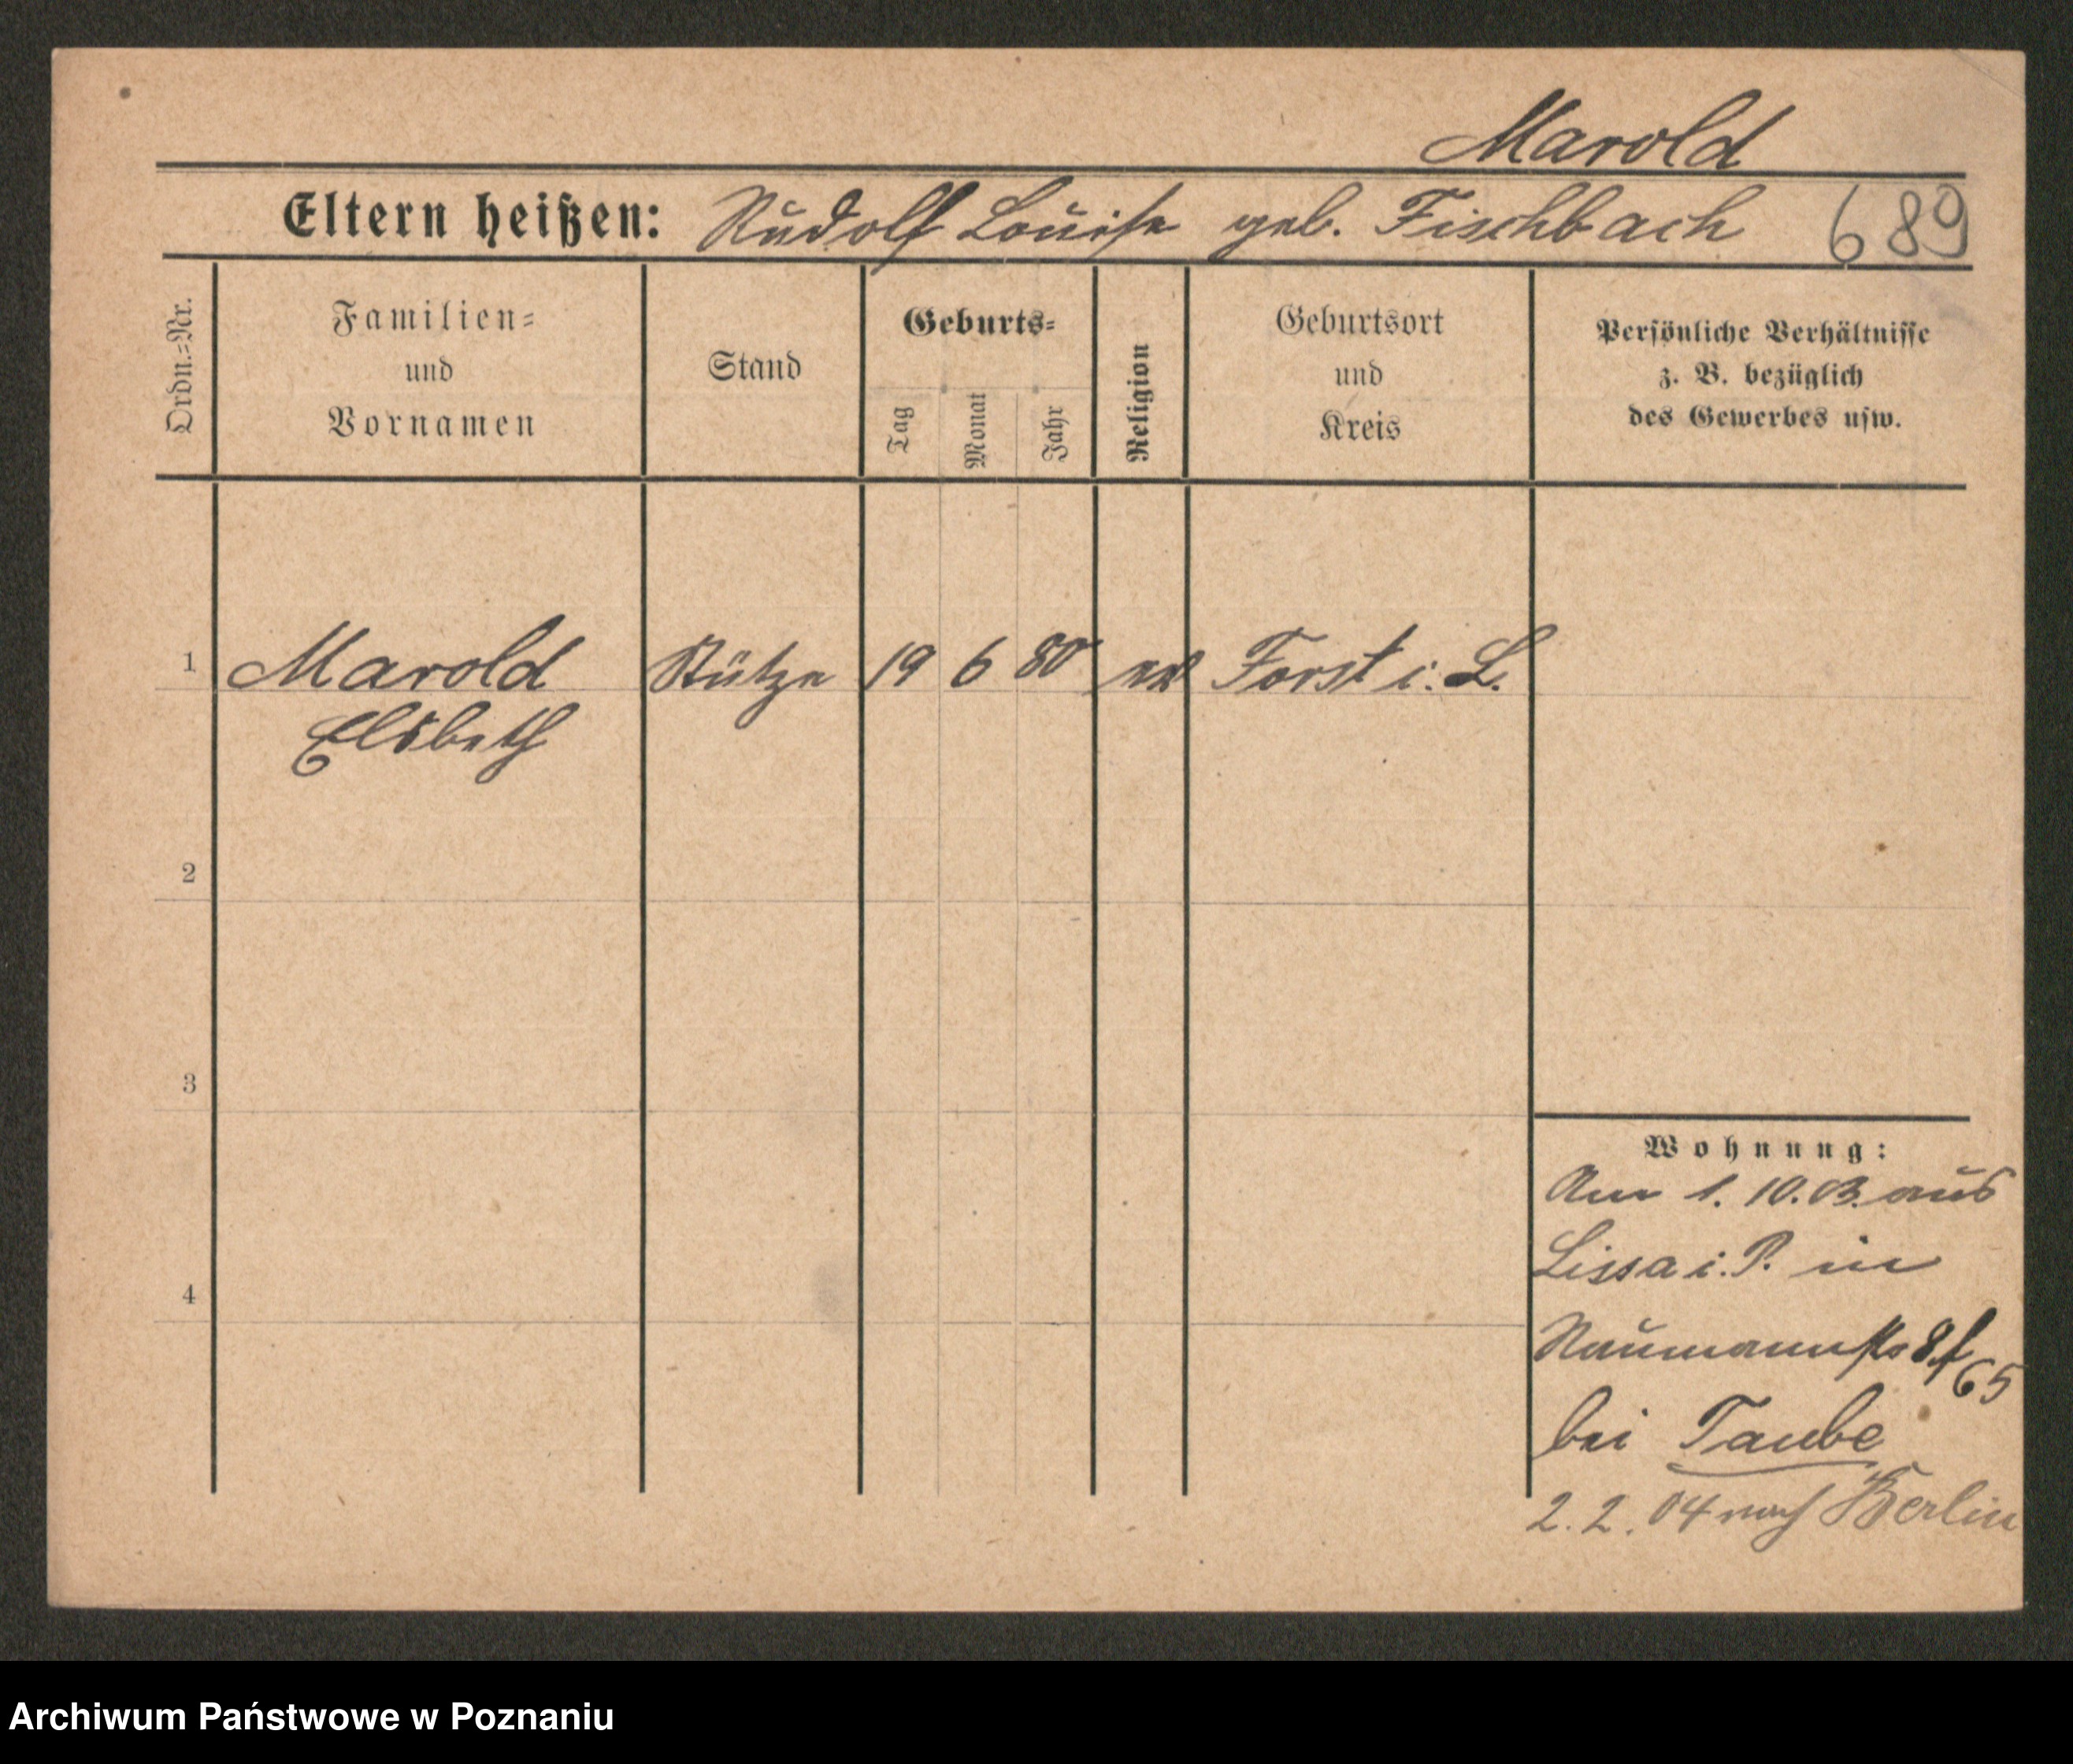 Marold
Eltern heißen: Rudolf Louise geb. Fischbach 689
Ordn.=Nr.
Familien=
und
Vornamen
Stand
Geburts=
Tag
Monat
Jahr
Religion
Geburtsort
und
Kreis
Persönliche Verhältnisse
z. B. bezüglich
des Gewerbes usw.
1 Marold Stütze 19 6 80 ev Forst i. L.
Elsbeth
2
3
4
Wohnung:
Am 1. 10. 03. aus
Lissa i. P. in
Naumannstr
65
bei Taube
2. 2. 04 nach Berlin
Archiwum Państwowe w Poznaniu